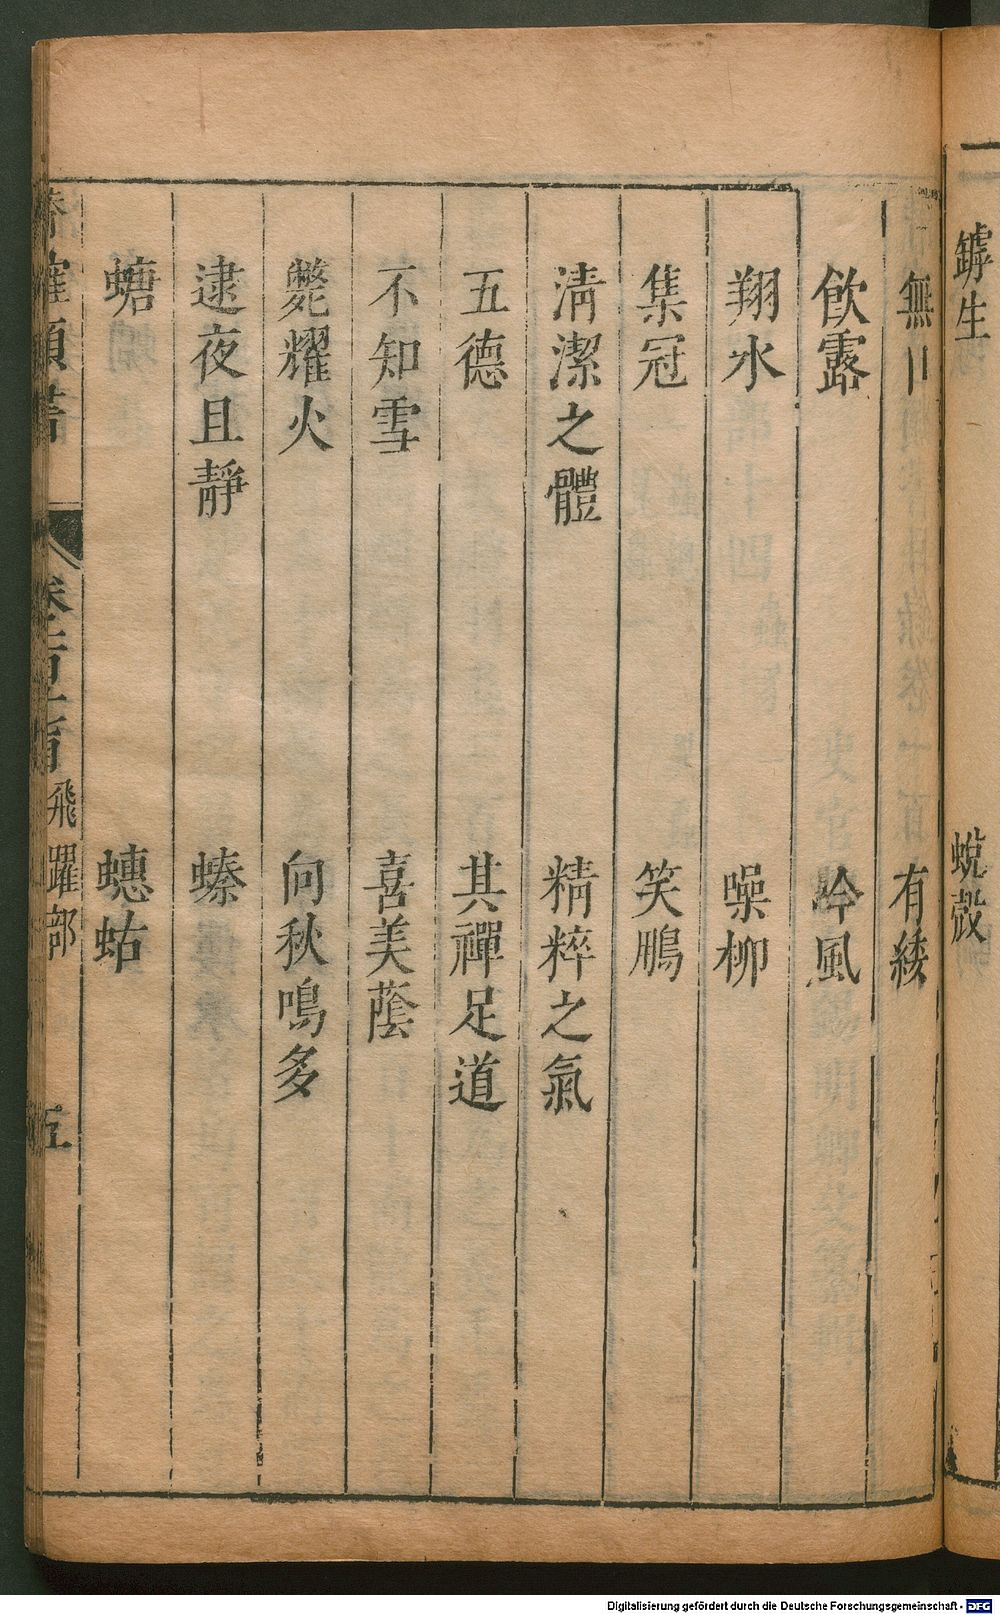 罅生 蛻殼
無〢 有緌
飲露 吟風
翔水 噪柳
集冠 笑鵬
清潔之體 精粹之氣
五德 其禪足道
不知雪 喜美蔭
斃耀火 向秋鳴多
逮夜且靜 螓
螗 蟪蛄
飛躍部 五
Digitalisierung gefördert durch die Deutsche Forschungsgemeinschaft - DFG